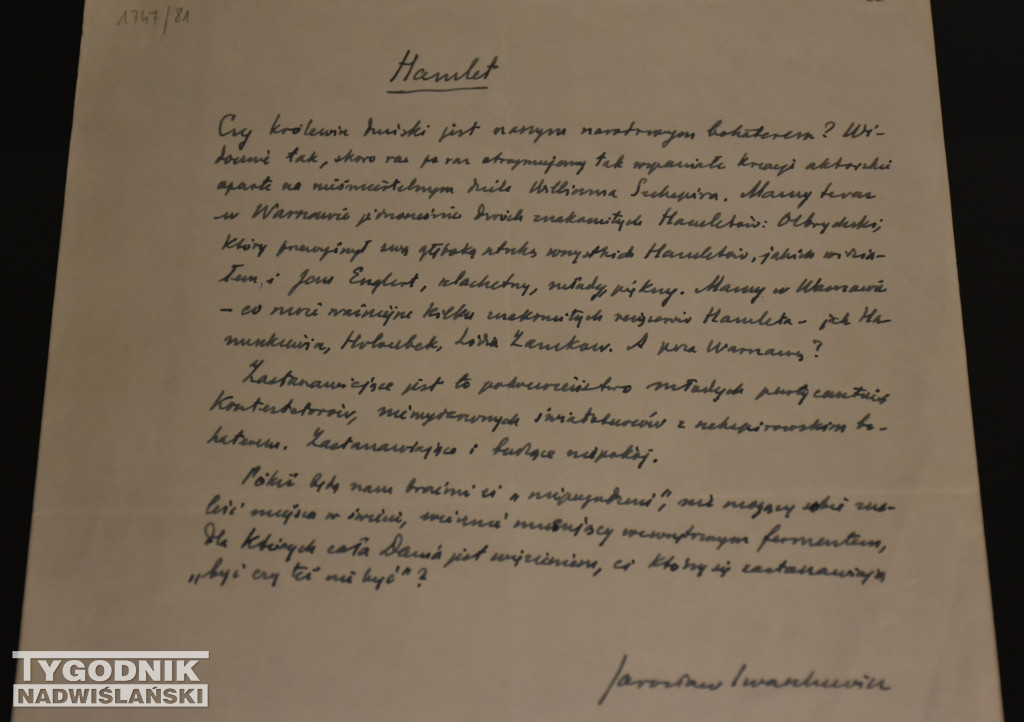 1747/81
Hamlet
Czy królewicz duński jest naszym narodowym bohaterem? Wi-
docznie tak, skoro raz po raz otrzymujemy tak wspaniałe kreacje aktorskie
oparte na nieśmiertelnym dziele Williama Szekspira. Mamy teraz
w Warszawie jednocześnie dwóch znakomitych Hamletów: Olbrychski,
który przewyższył swą głęboką sztuką wszystkich Hamletów, jakich widzia-
łem, i Jan Englert, szlachetny, młody, piękny. Mamy w Warszawie
– co może ważniejsze kilku znakomitych reżyserów Hamleta – jak Ha-
nuszkiewicz, Holoubek, Lidia Zamkow. A poza Warszawą?
Zastanawiające jest to pokrewieństwo młodych
kontestatorów, niewyżytych światoburców z szekspirowskim bo-
haterem. Zastanawiające i budzące niepokój.
Póki będą nam braćmi ci „niepogodzeni”, nie mogący sobie zna-
leźć miejsca w świecie, wiecznie musujący wewnętrznym fermentem,
dla których cała Dania jest więzieniem, ci którzy się zastanawiają
„być czy też nie być”?
Jarosław Iwaszkiewicz
TYGODNIK
NADWIŚLAŃSKI